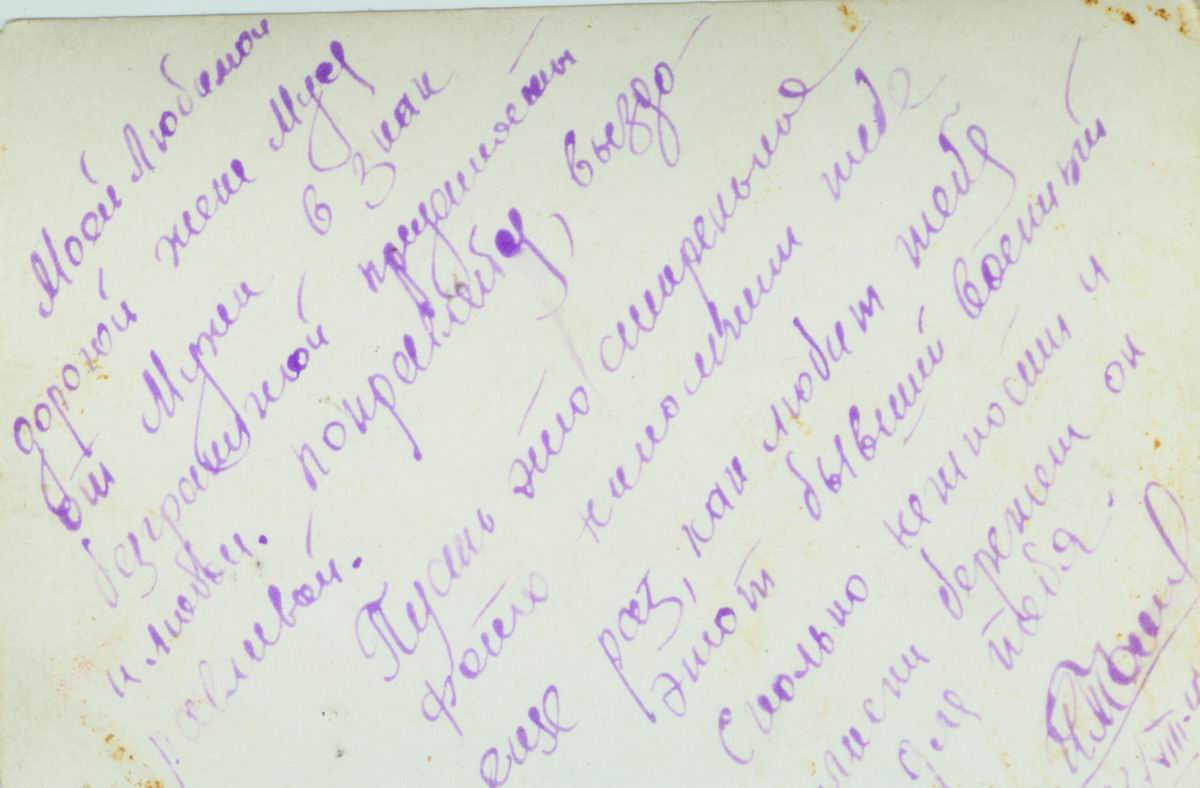 Моей Любимой
дорогой жене Мусе
от Мужа в знак
безграничной преданности
и любви. поправляйся, выздо
равливай.
Пусть это старенькое
фото напомнит тебе
еще раз, как любит тебя
этот бывший военный
Сколько нежности и
бережет он
для тебя.